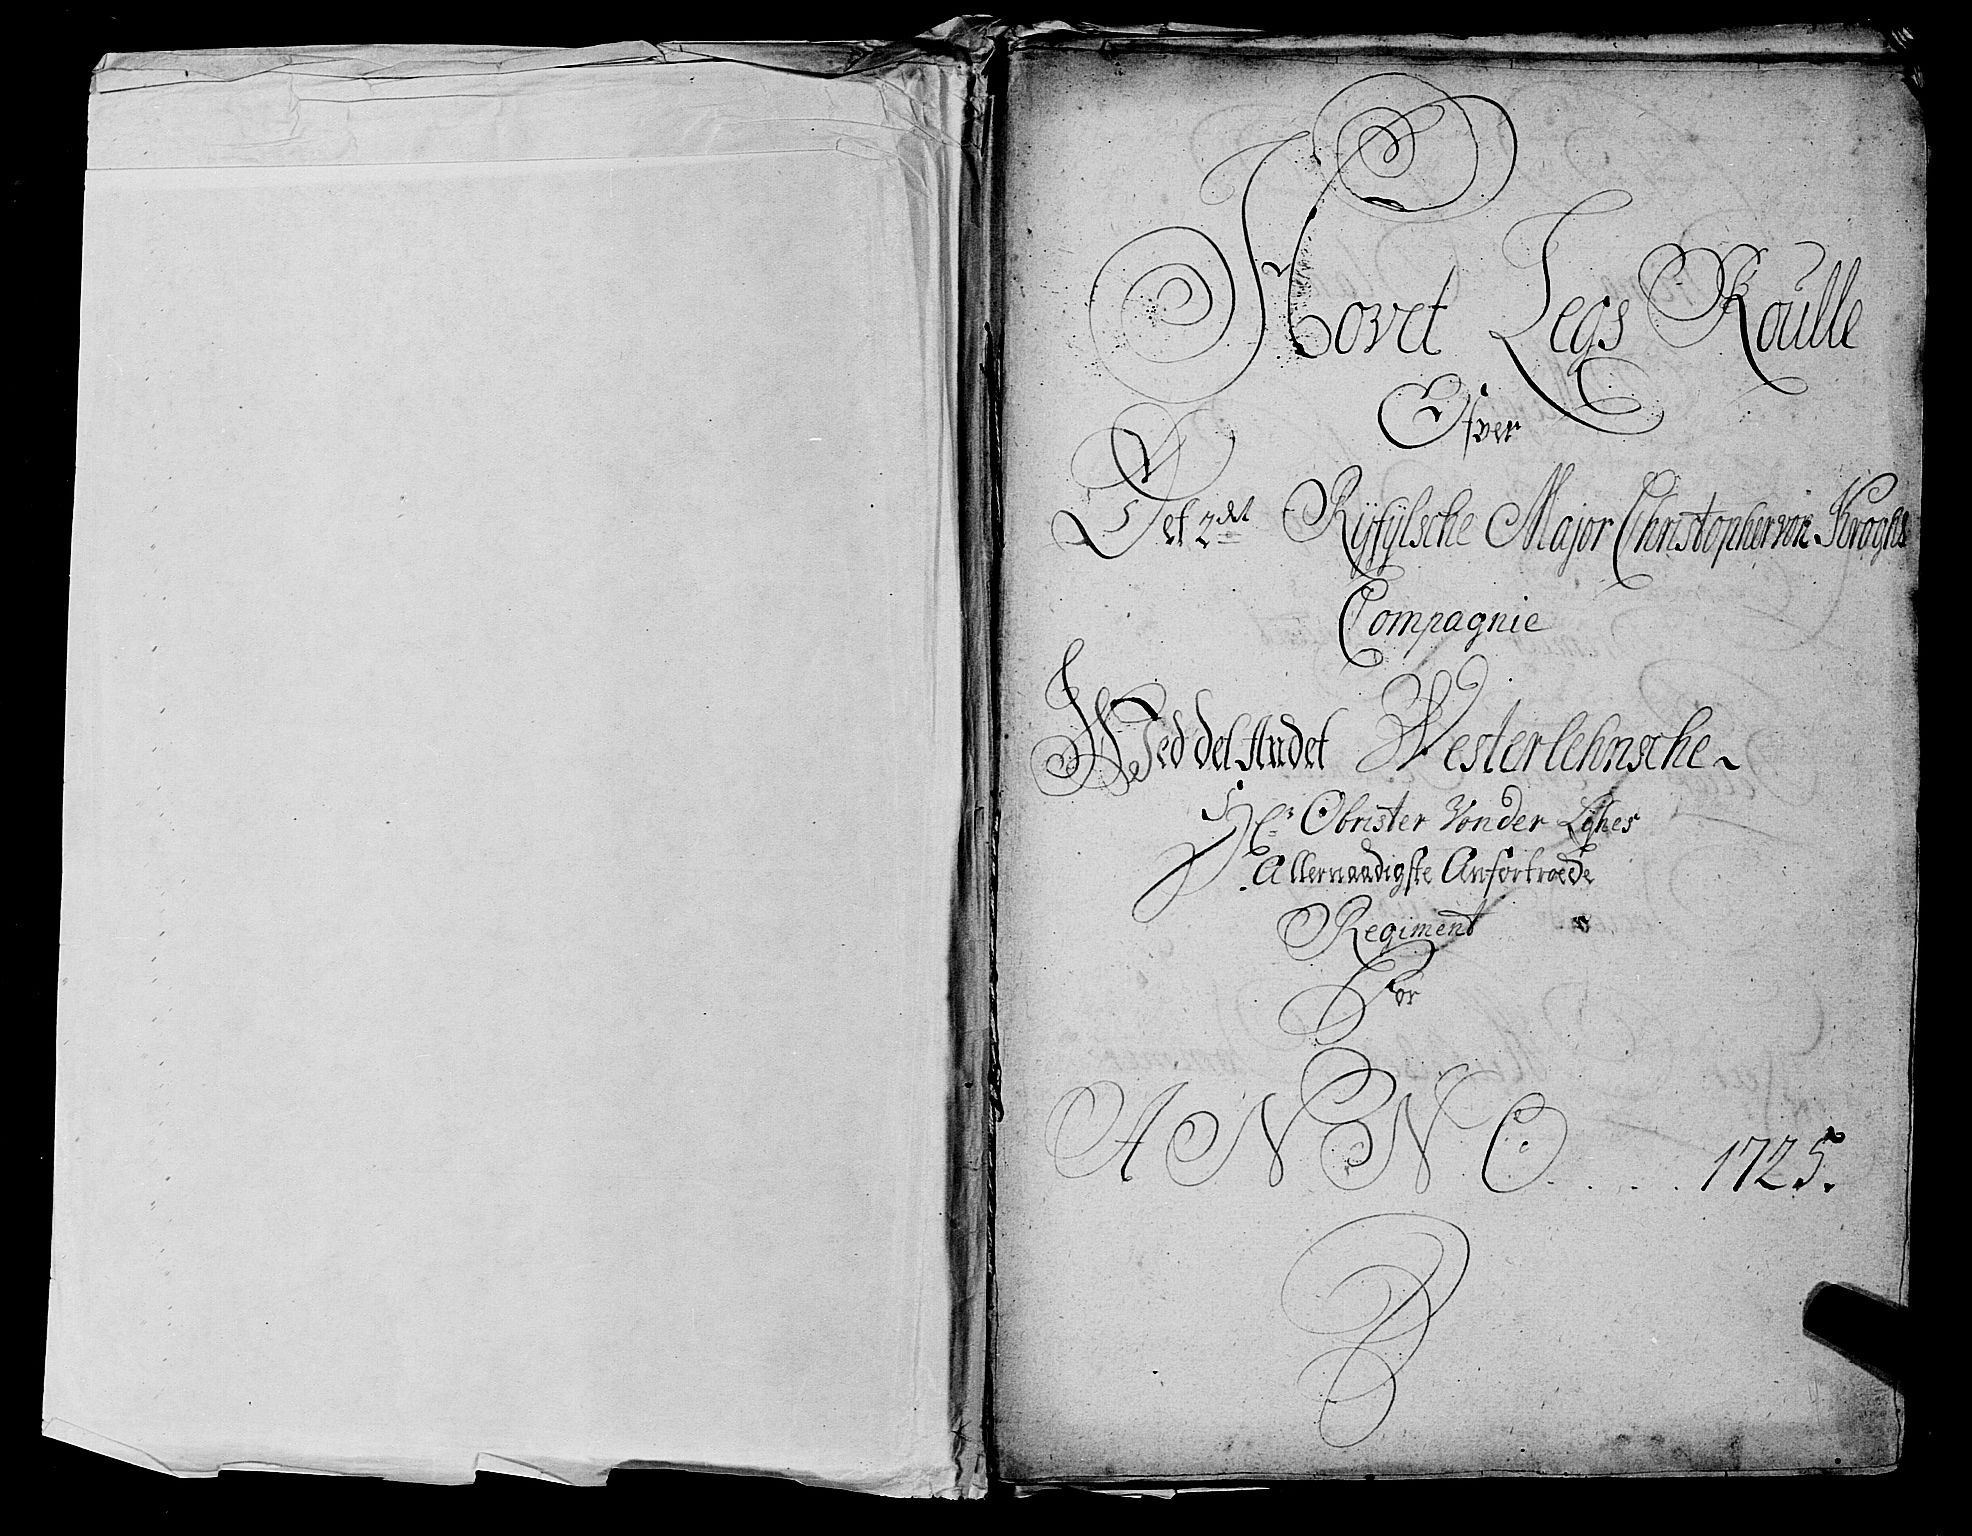 Hovet Legs Roulle
Ofver
Det 2det Ryfylsche Major Christopher von Kroghs
Compagnie
Wed det Andet Westerlehnsche
Hr Obrister Vonder Lyhes
Allernaadigste Anfortroede
Regiment
For
ANNO . . . . 1725.